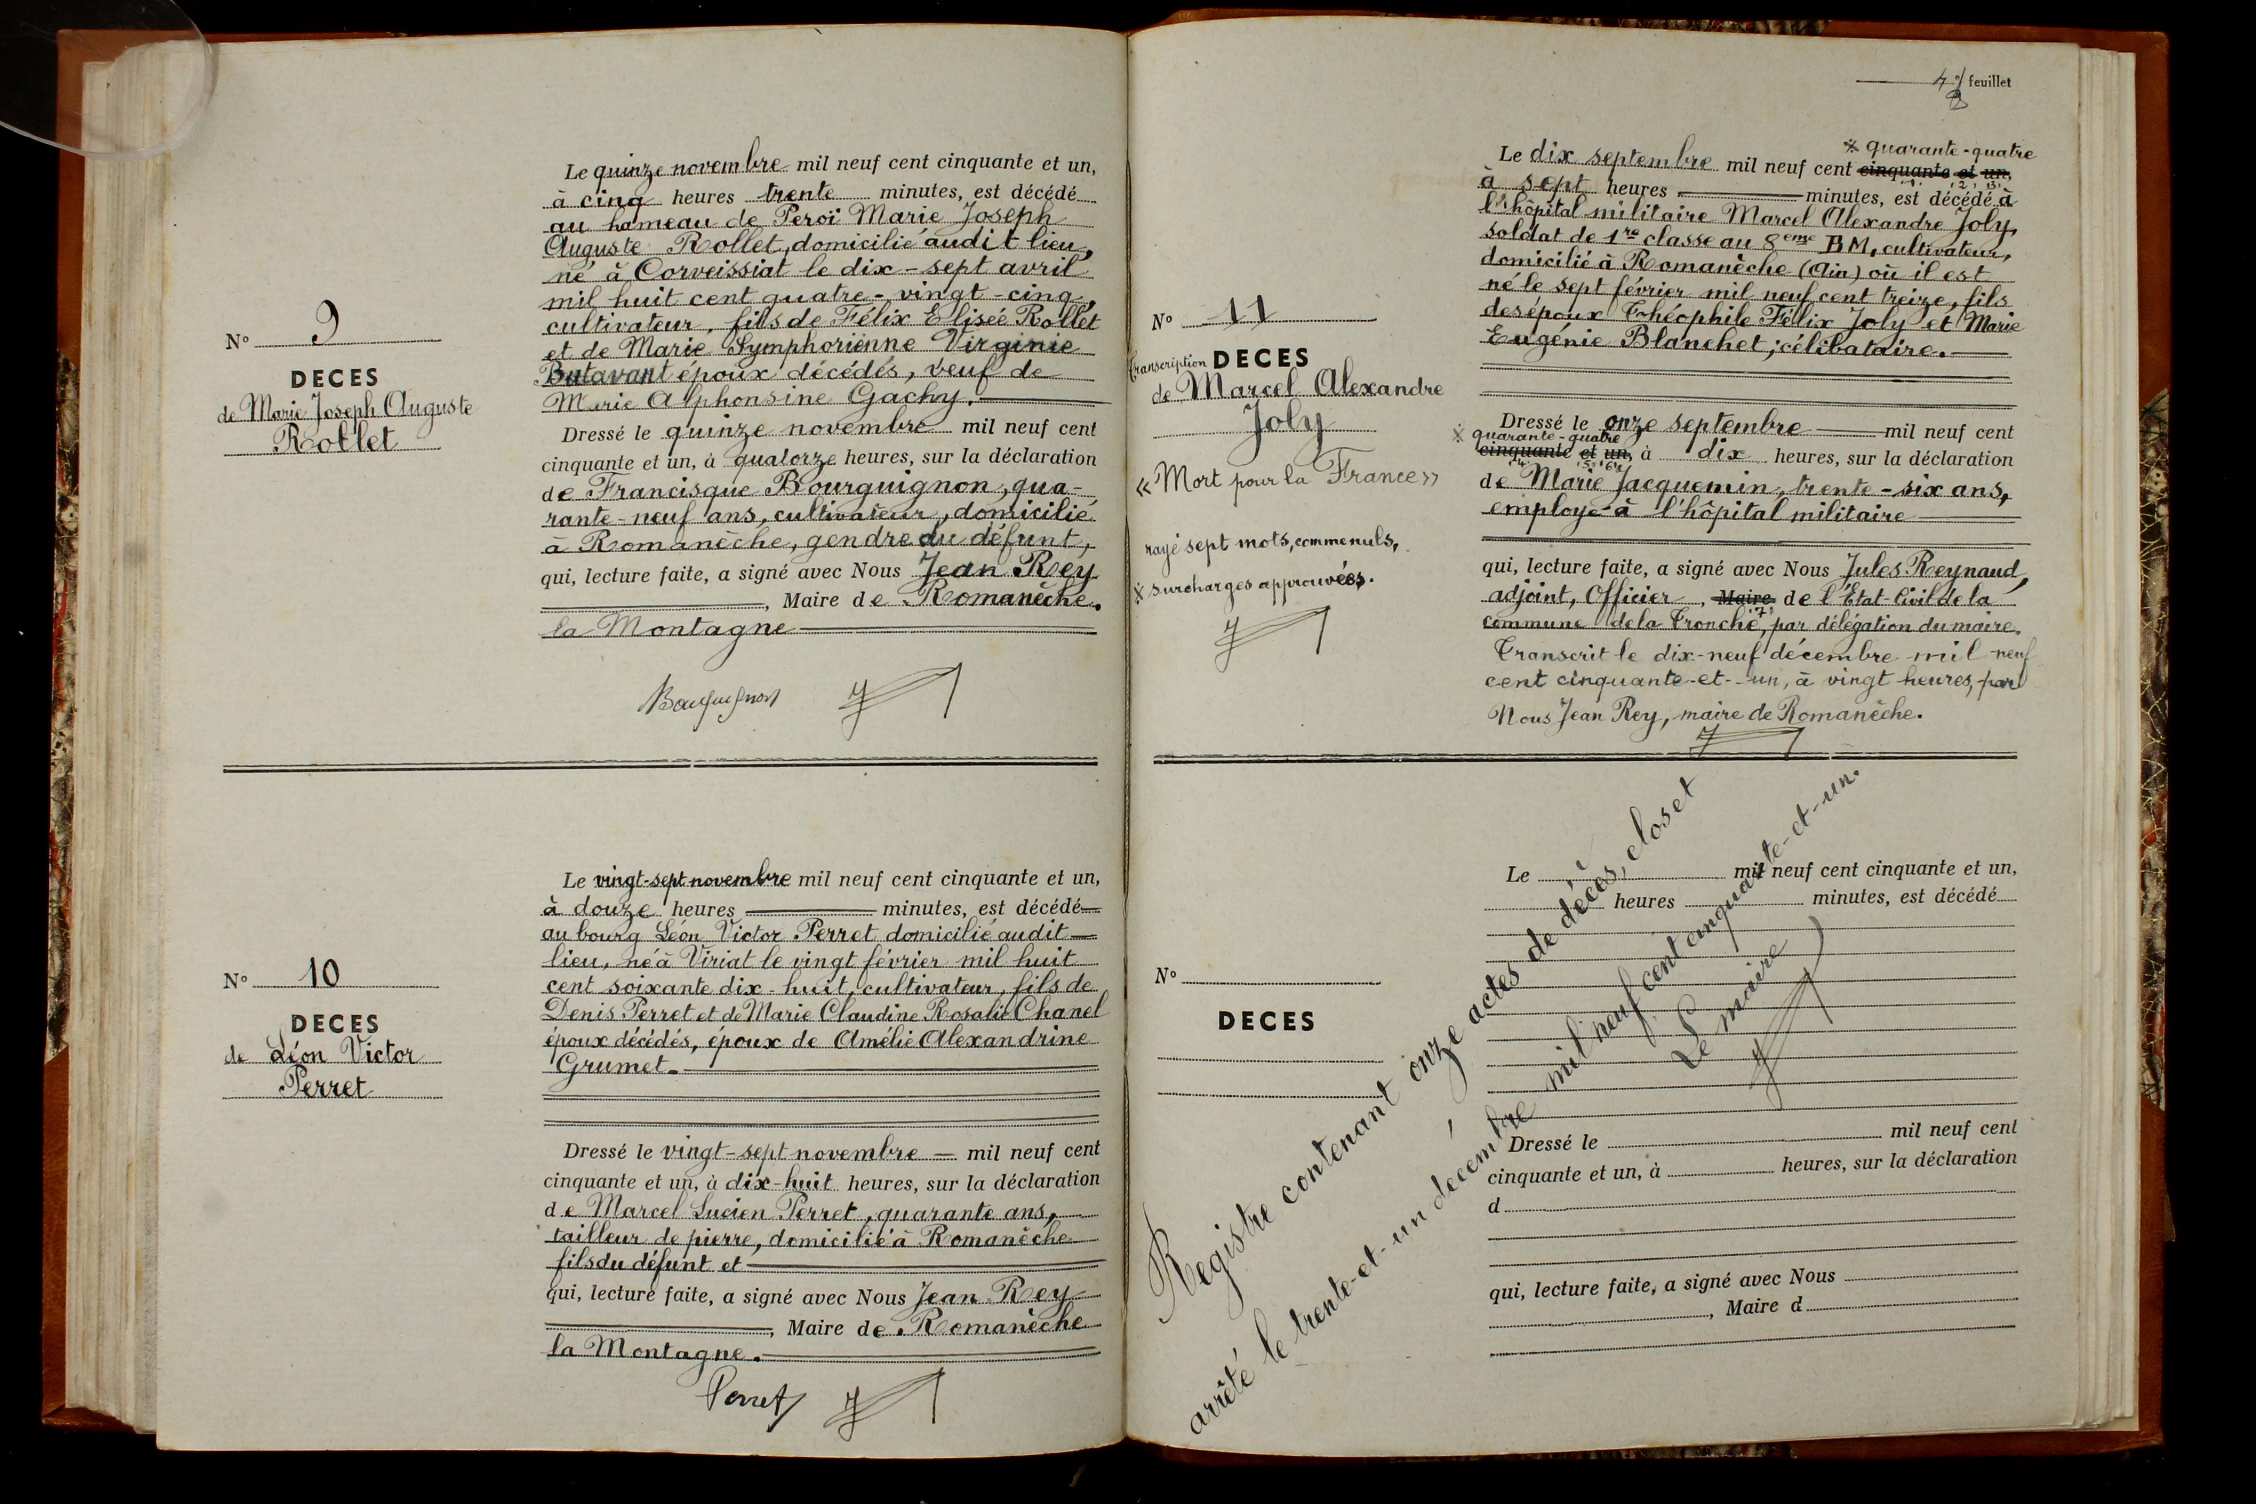 Le quinze novembre mil neuf cent cinquante et un,
à cinq heures trente minutes, est décédé
au hameau de Peroï Marie Joseph
Auguste Rollet, domicilié audit lieu,
né à Corveissiat le dix-sept avril
mil huit cent quatre-vingt-cinq,
cultivateur, fils de Félix Elisée Rollet
et de Marie Symphorienne Virginie
Butavant époux décédés, veuf de
Marie Alphonsine Gachy.
N° 9
DECES
de Marie Joseph Auguste
Rollet
Dressé le quinze novembre mil neuf cent
cinquante et un, à quatorze heures, sur la déclaration
de Francisque Bourguignon, qua-
rante-neuf ans, cultivateur, domicilié
à Romanèche, gendre du défunt,
qui, lecture faite, a signé avec Nous Jean Rey
, Maire de Romanèche.
la Montagne
Bourguignon
Le vingt-sept novembre mil neuf cent cinquante et un,
à douze heures minutes, est décédé
au bourg Léon Victor Perret domicilié audit
lieu, né à Viriat le vingt février mil huit
cent soixante dix-huit, cultivateur, fils de
Denis Perret et de Marie Claudine Rosalie Chanel
époux décédés, époux de Amélie Alexandrine
Grumet.
N° 10
DECES
de Léon Victor
Perret
Dressé le vingt-sept novembre mil neuf cent
cinquante et un, à dix-huit heures, sur la déclaration
de Marcel Lucien Perret, quarante ans,
tailleur de pierre, domicilié à Romanèche
fils du défunt et
qui, lecture faite, a signé avec Nous Jean Rey
, Maire de Romanèche
la Montagne.
Perret
feuillet
※ quarante-quatre
Le dix septembre mil neuf cent cinquante et un,
1 2 3
à sept heures minutes, est décédé à
l'hôpital militaire Marcel Alexandre Joly,
soldat de 1re classe au 8eme BM, cultivateur,
domicilié à Romanèche (Ain) où il est
né le sept février mil neuf cent treize, fils
des époux Théophile Félix Joly et Marie
Eugénie Blanchet; célibataire.
N° 11
transcription DECES
de Marcel Alexandre
Joly
« Mort pour la France »
rayé sept mots, comme nuls,
※ surcharges approuvées.
Dressé le onze septembre mil neuf cent
※ quarante-quatre
cinquante et un, à dix heures, sur la déclaration
4 5 6
de Marie Jacquemin, trente-six ans,
employé à l'hôpital militaire
qui, lecture faite, a signé avec Nous Jules Reynaud,
adjoint, Officier, Maire de l'Etat-Civil de la
7
commune de la Tronche, par délégation du maire.
Transcrit le dix-neuf décembre mil neuf
cent cinquante-et-un, à vingt heures, par
Nous Jean Rey, maire de Romanèche.
Le mil neuf cent cinquante et un,
heures minutes, est décédé
N°
DECES
Dressé le mil neuf cent
cinquante et un, à heures, sur la déclaration
d
qui, lecture faite, a signé avec Nous
, Maire d
Registre contenant onze actes de décès, clos et
arrêté le trente-et-un décembre mil neuf cent cinquante-et-un.
Le maire